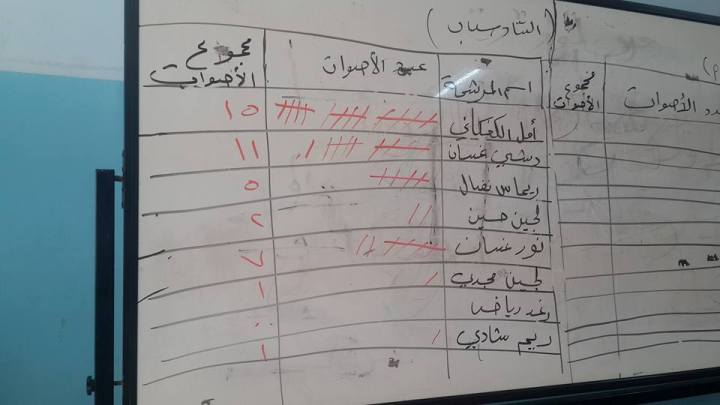 (السادس ب)
اسم المرشحة عدد الأصوات مجموع الأصوات
أمل الكيلاني ١٥
غسان ١١
ريماس نضال ٥
لجين حسين ٢
نور غسان ٧
لجين مجدي ١
رغد رياض ٠
ريم شادي ١
عدد الأصوات مجموع الأصوات